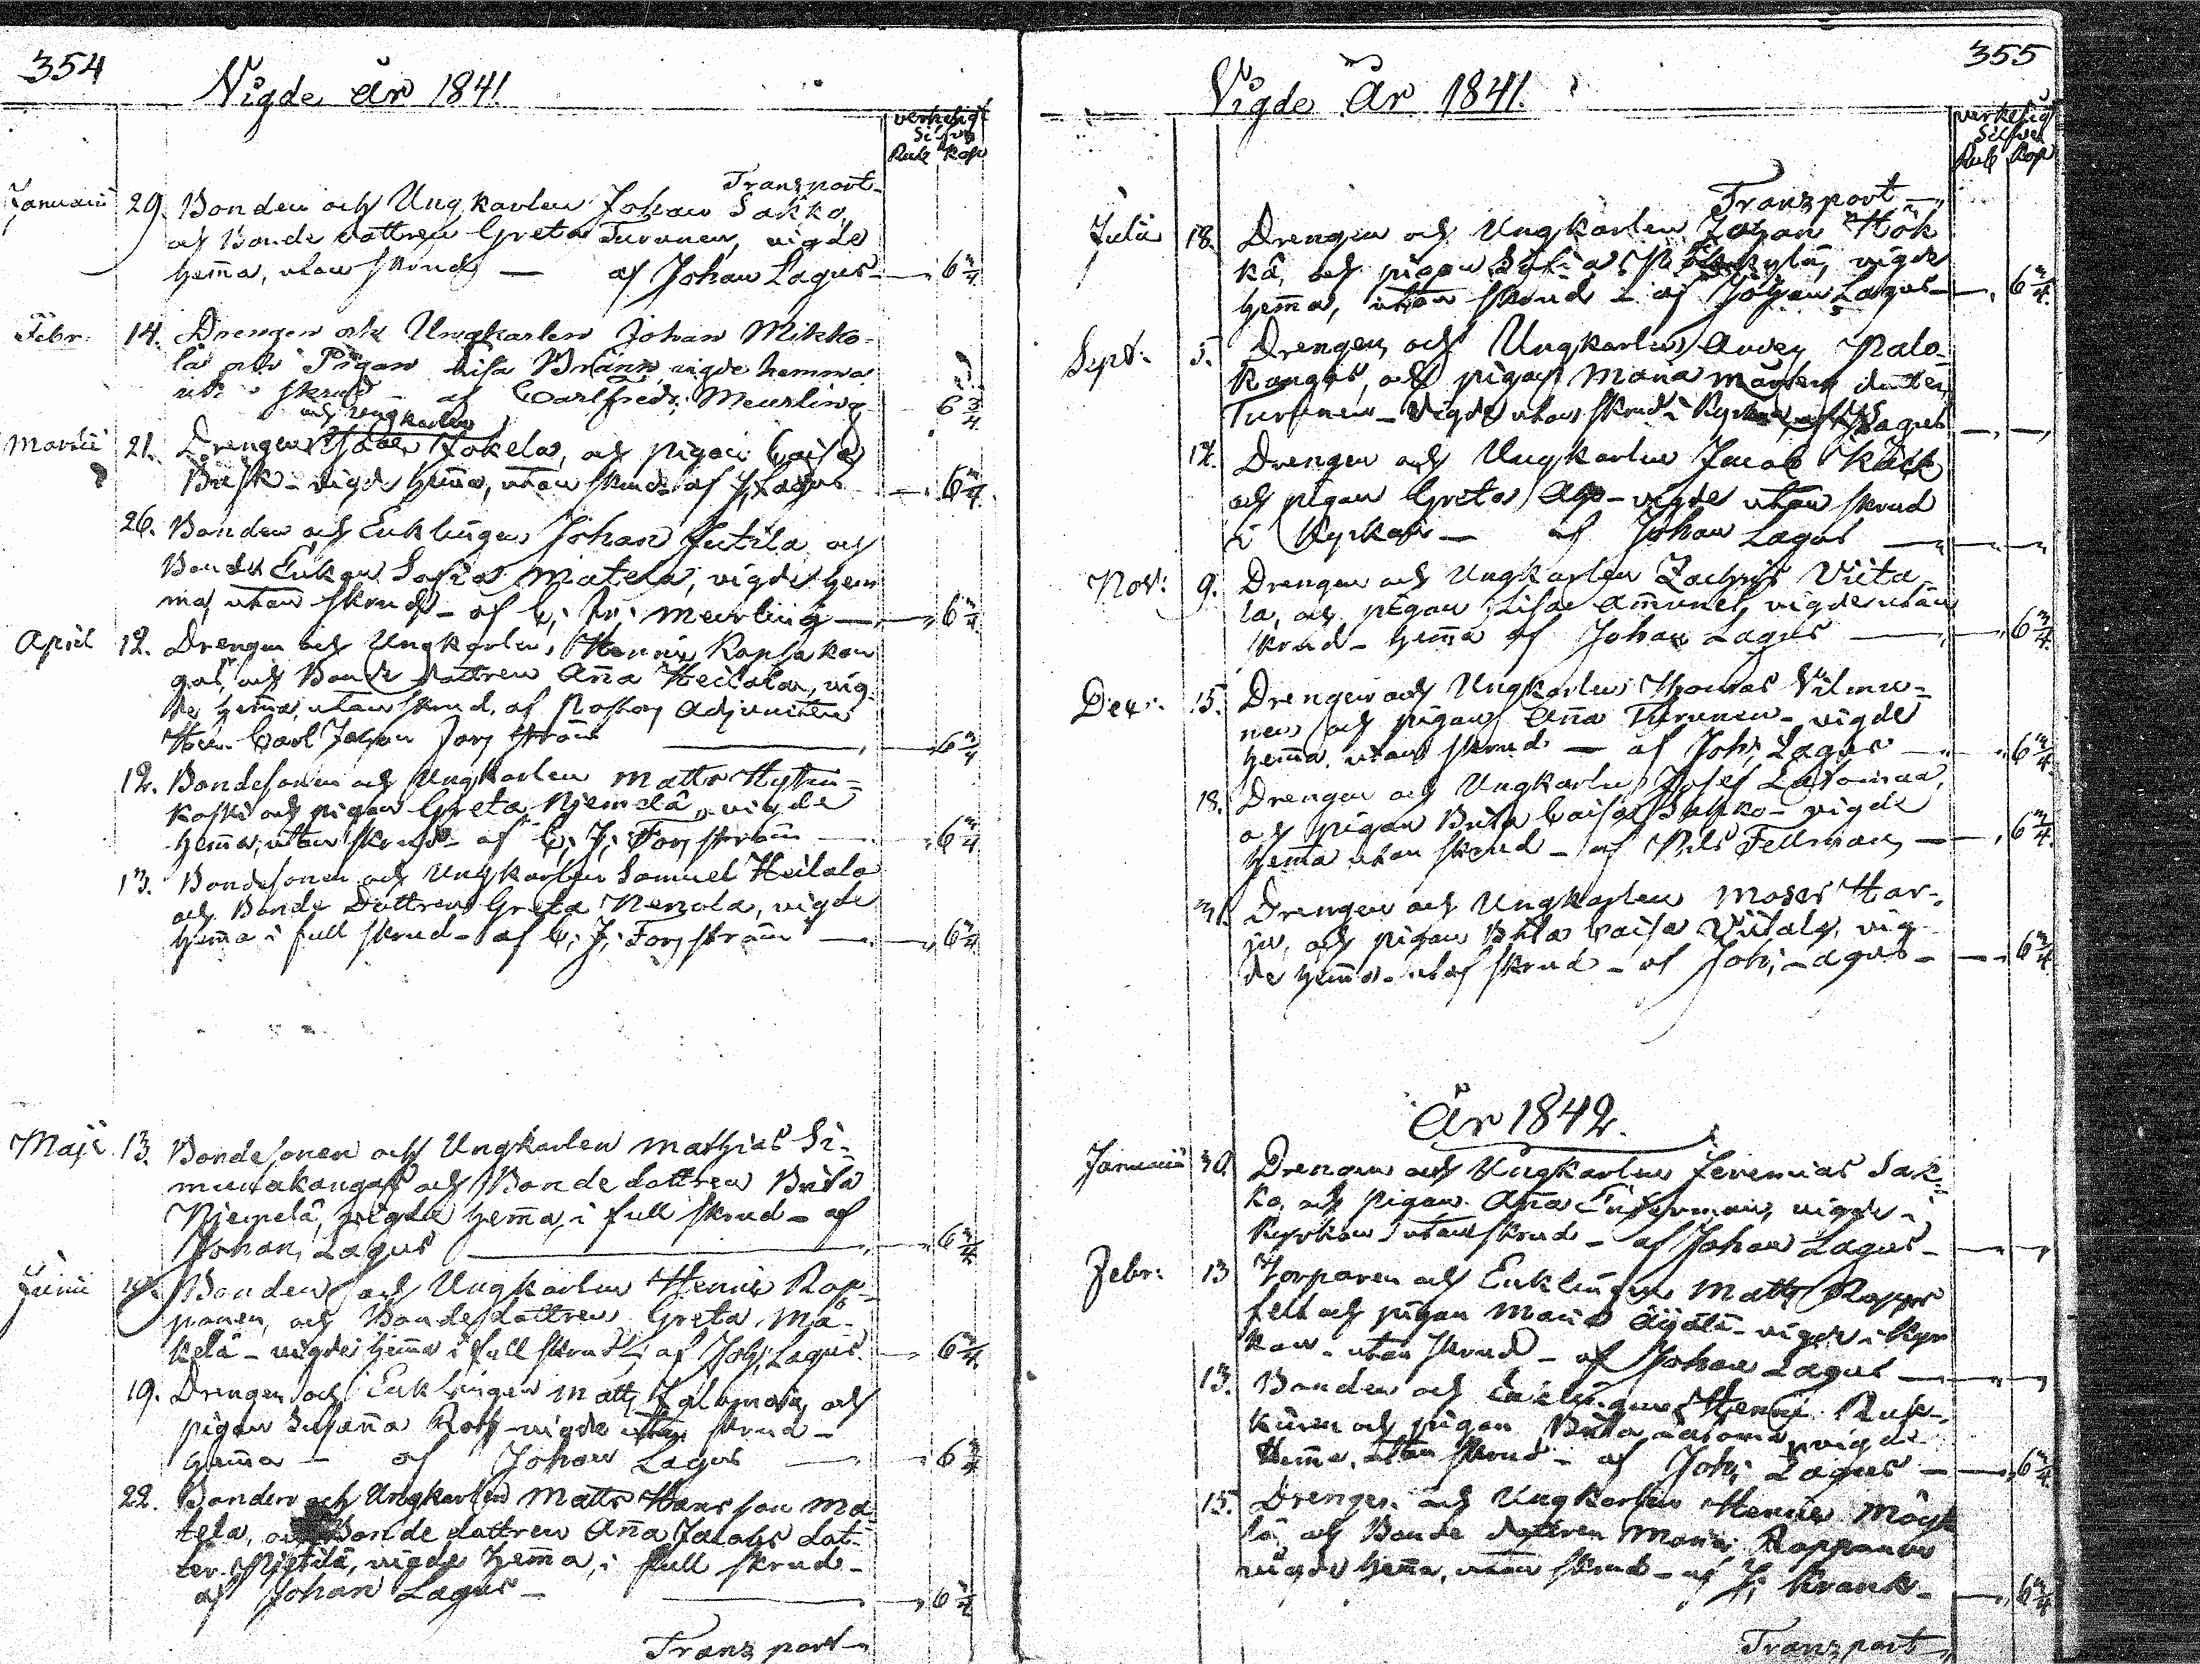 354
Vigde år 1841.
verkeligt
Silfver
Rub Kop
Transport
Januarii 29. Bonden och Ungkarlen Johan Sakko,
och Bonde dottren Greta Turunen, vigde
hemma, utan skrud — af Johan Lagus — 6 3/4
Febr. 14. Drengen och Ungkarlen Johan Mikko-
lä och Pigan Lisa Bränn vigde hemma
utan skrud - af Carl Fredr: Meurling 6 3/4
och Ungkarlen
Martii 21. Drengen Jokela, och pigan Caisa
Busk - vigde hemma, utan skrud af J. Lagus — 6 3/4
26. Bonden och Enklingen Johan Jutila och
Bonde Enkan Sofia Matela, vigde hem
ma, utan skrud - af C: Fr: Meurling — 6 3/4
April 12. Drengen och Ungkarlen Henric Rapsakan
gas, och Bonde dottren Anna Heilala, vig-
de hemma, utan skrud, af Pastors Adjuncten
Herr Carl Johan Forsström — 6 3/4
12. Bondesonen och Ungkarlen Matts
koski och pigan Greta Njemelä, vigde
hemma, utan skrud - af C: J: Forsström — 6 3/4
13. Bondesonen och Ungkarlen Samuel Heilala
och Bonde Dottren Greta Nenola, vigde
hemma i full skrud - af C: J: Forsström — 6 3/4
Maji 13. Bondesonen och Ungkarlen Mathias Si-
munakangas och Bonde dottren Brita
Njemelä, vigde hemma, i full skrud - af
Johan Lagus — 6 3/4
Junii Bonden och Ungkarlen Henric Rap-
panen, och Bonde dottren Greta Mä-
kelä - vigde hemma i full skrud - af Joh: Lagus. — 6 3/4
19. Drengen och Enklingen Matts och
pigan Susanna - vigde utan skrud -
hemma - af Johan Lagus — 6 3/4
22. Bonden och Ungkarlen Matts Hansson Ma-
tela, och Bonde dottren Anna Jacobs dot-
ter Pietilä, vigde hemma, i full skrud -
af Johan Lagus — 6 3/4
Transport
355
Vigde År 1841.
verkeligt
Silfver
Rub Kop
Transport —
Julii 18. Drengen och Ungkarlen Johan Hök
kä, och pigan vigde
hemma, utan skrud - af Johan Lagus — 6 3/4
Sept: 5. Drengen och Ungkarlen Anders Palo-
kangas, och pigan Maria Mårtens dotter
Turunen - vigde utan skrud i Kyrkan, af J. Lagus —
12. Drengen och Ungkarlen Jacob
och pigan Greta - vigde utan skrud
i Kyrkan — af Johan Lagus —
Nov: 9. Drengen och Ungkarlen Zachris Viita-
la, och pigan Lisa vigde utan
skrud - hemma af Johan Lagus — 6 3/4
Dec: 15. Drengen och Ungkarlen Thomas Vilmu-
nen och pigan Anna Turunen - vigde
hemma, utan skrud — af Joh: Lagus — 6 3/4
18. Drengen och Ungkarlen Josef Lasomaa,
och pigan Brita Caisa - vigde
hemma utan skrud - af Nils Fellman, — 6 3/4
31. Drengen och Ungkarlen Moses Har-
ju, och pigan Brita Caisa Viitala, vig-
de hemma - utan skrud - af Joh: Lagus — 6 3/4
År 1842.
Januarii 30. Drengen och Ungkarlen Jeremias Sak-
ko, och pigan Anna vigde i
Kyrkan utan skrud - af Johan Lagus —
Febr: 13 Torparen och Enklingen Matts
och pigan Maria - vigde i Kyr
kan - utan skrud - af Johan Lagus —
13. Bonden och Enklingen Henric Ruk-
och pigan Brita vigde
hemma, utan skrud - af Joh: Lagus — 6 3/4
15. Drengen och Ungkarlen Henric
lä, och Bonde dottren Maria Rappanen
vigde hemma, utan skrud - af J: Krank — 6 3/4
Transport